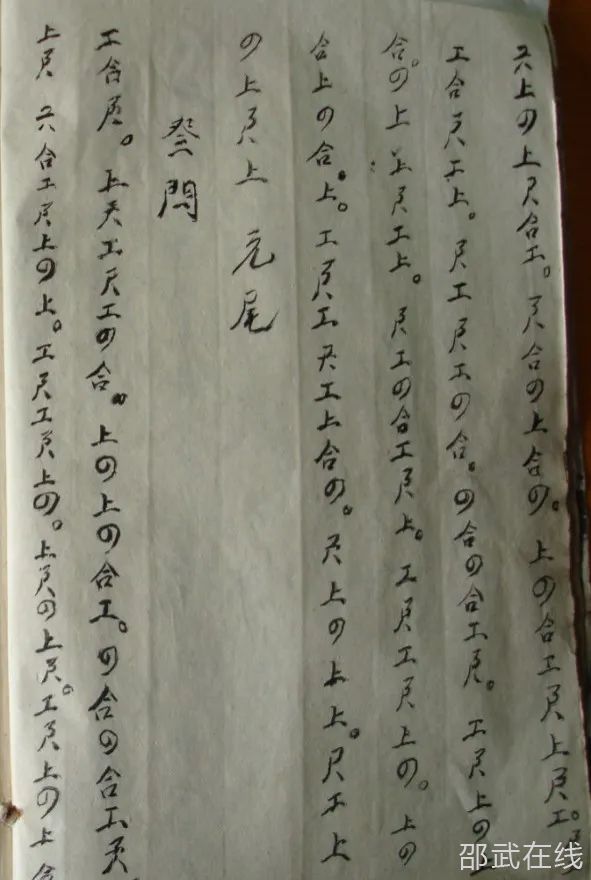 六上の上尺合工。尺合の上合の。上の合工尺上尺工。尺
工合尺工上。尺工尺工の合。の合の合工尺。工尺上の上
合。の上上尺工上。尺工の合工尺上。工尺工尺上の。上の
合上の合。上。工尺工尺工上合の。尺上の上上。尺工上
の上尺上 元尾
工合尺。上尺工尺工の合。上の上の合工。の合の合工尺
上尺 六合工尺上の上。工尺工尺上の。上尺の上尺。工尺上の上合
邵武在线